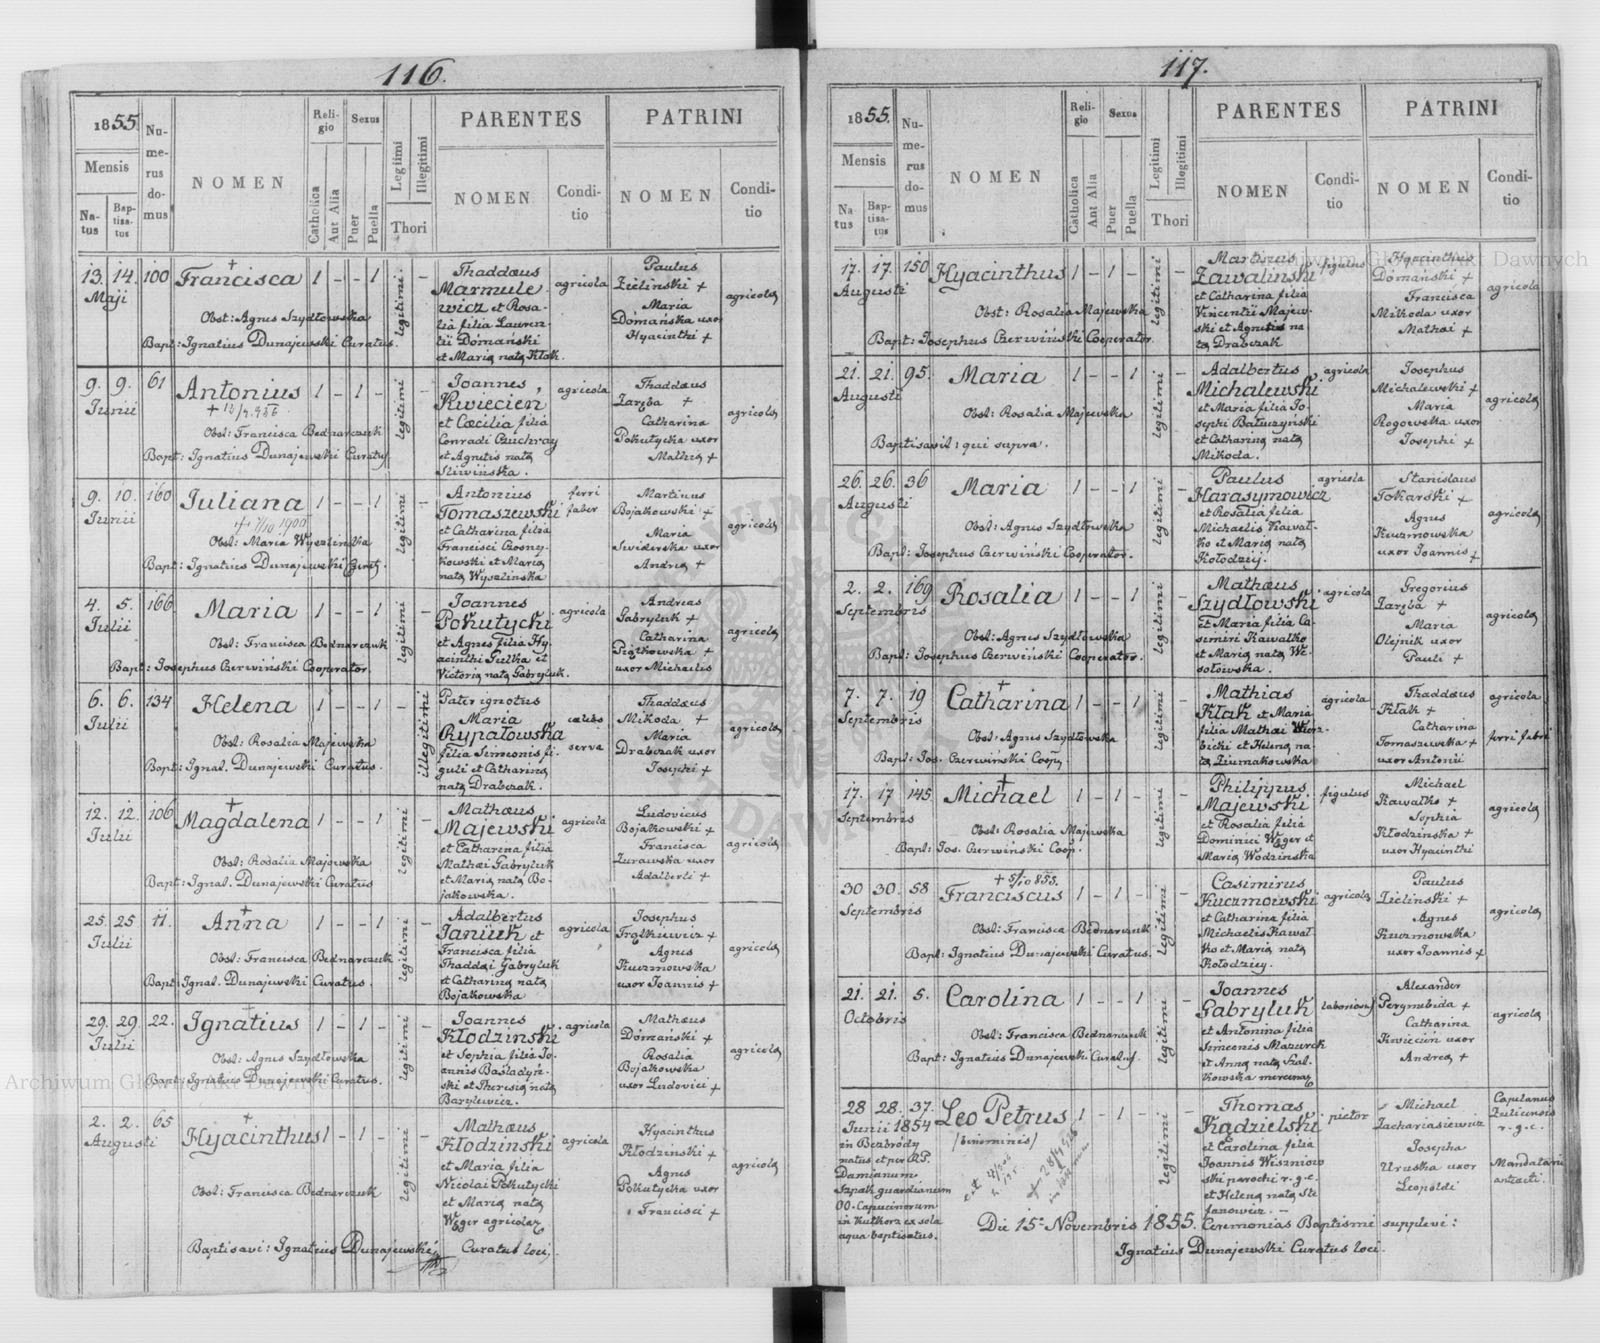 116.
1855.
Mensis
Natus
Baptisatus
Numerus domus
NOMEN
Religio
Catholica
Aut Alia
Sexus
Puer
Puella
Legtimi
Illegitimi
Thori
PARENTES
NOMEN
Conditio
PATRINI
NOMEN
Conditio
13. 14. 100 Francisca 1 - - 1 legitimi -
Maji
Obst: Agnes Szydłowska
Bapt: Ignatius Dunajewski Curatus.
Thaddæus
Marmulewicz et Rosalia filia Laurentii Dómański
et Maria nata Kłak.
agricola
Paulus
Zieliński +
Maria
Dómańska uxor
Hyacinthi +
agricola
9. 9. 61 Antonius 1 - 1 - legitimi -
Junii
Obst: Francisca Bednarczuk
Bapt: Ignatius Dunajewski Curatus.
Joannes
Kwiecien
et Cæcilia filia
Conradi
et Agnetis nata
Śliwińska.
agricola
Thaddæus
Zaręba +
Catharina
Pokutycka uxor
Mathia +
agricola
9. 10. 160 Juliana 1 - - 1 legitimi -
Junii
Obst: Maria Wyszlińska
Bapt: Ignatius Dunajewski Curat.
Antonius
Tomaszewski
et Catharina filia
Francisci
et Maria
nata Wyszlińska
ferri
faber
Martinus
Bojakowski +
Maria
Swiderska uxor
Andrea +
agricola
4. 5. 166. Maria 1 - - 1 legitimi -
Julii
Obst: Francisca Bednarczuk
Bapt: Josephus Czerwiński Cooperator.
Joannes
Pokutycki
et Agnes filia Hyacinthi Gulka et
Victoria nata Gabryluk.
agricola
Andreas
Gabryluk +
Catharina
Piątkowska +
uxor Michaelis
agricola
6. 6. 134 Helena 1 - - 1 - illegitimi
Julii
Obst: Rosalia Majewska
Bapt: Ignat. Dunajewski Curatus.
Pater ignotus
Maria
Rypałowska
filia Simeonis figuli et Catharina
nata Drabczak.
cælebs
serva
Thaddæus
Mikoda +
Maria
Drabczak uxor
Josephi +
agricola
12. 12. 106 Magdalena 1 - - 1 legitimi -
Julii
Obst: Rosalia Majewska
Bapt: Ignat. Dunajewski Curatus
Mathæus
Majewski
et Catharina filia
Mathæi Gabryluk
et Maria nata Bojakowska.
agricola
Ludovicus
Bojakowski +
Francisca
Zurawska uxor
Adalberti +
agricola
25. 25 11. Anna 1 - - 1 legitimi -
Julii
Obst: Francisca Bednarczuk
Bapt: Ignat. Dunajewski Curatus.
Adalbertus
Janiuk et
Francisca filia
Thaddæi Gabryluk
et Catharina nata
Bojakowska
agricola
Josephus
Frątkiewicz +
Agnes
Kuczmowska
uxor Joannis +
agricola
29. 29. 22. Ignatius 1 - 1 - legitimi -
Julii
Obst: Agnes Szydłowska
Bapt: Ignatius Dunajewski Curatus.
Joannes
Kłodzinski
et Sophia filia Joannis Baśladyński et Theresia nata
Barylewicz.
agricola
Mathæus
Dómański +
Rosalia
Bojakowska
uxor Ludovici +
agricola
2. 2. 65 Hyacinthus 1 - 1 - legitimi -
Augusti
Obst: Francisca Bednarczuk
Mathæus
Kłodzinski
et Maria filia
Nicolai Pokutycki
et Maria nata
Węger agricola
agricola
Hyacinthus
Kłodzinski +
Agnes
Pokutycka uxor
Francisci +
agricola
Baptisavi: Ignatius Dunajewski Curatus loci.
117.
1855.
Mensis
Natus
Baptisatus
Numerus domus
NOMEN
Religio
Catholica
Aut Alia
Sexus
Puer
Puella
Legitimi
Illegitimi
Thori
PARENTES
NOMEN
Conditio
PATRINI
NOMEN
Conditio
17. 17. 150 Hyacinthus 1 - 1 - legitimi -
Augusti
Obst: Rosalia Majewska
Bapt: Josephus Czerwiński Cooperator.
Martinus
Zawaliński
et Catharina filia
Vincentii Majewski et Agnetis nata Drabczak
figulus
Hyacinthus
Dómański +
Francisca
Mikoda uxor
Mathæi +
agricola
21. 21. 95. Maria 1 - - 1 legitimi -
Augusti
Obst: Rosalia Majewska
Baptisavit: qui supra.
Adalbertus
Michalewski
et Maria filia Josephi Batuczyński
et Catharina nata
Mikoda.
agricola
Josephus
Michalewski +
Maria
Rogowska uxor
Josephi +
agricola
26. 26. 36 Maria 1 - - 1 legitimi -
Augusti
Obst: Agnes Szydłowska
Bapt: Josephus Czerwiński Cooperator.
Paulus
Harasymowicz
et Rosalia filia
Michaelis Kawałko et Maria nata
Kołodziej.
agricola
Stanislaus
Tokarski +
Agnes
Kuczmowska
uxor Joannis +
agricola
2. 2. 169 Rosalia 1 - - 1 legitimi -
Septembris
Obst: Agnes Szydłowska
Bapt: Josephus Czerwiński Cooperator.
Mathæus
Szydłowski
et Maria filia Casimiri Kawałko
et Maria nata Wesołowska.
agricola
Gregorius
Zaręba +
Maria
Olejnik uxor
Pauli +
agricola
7. 7. 19 Catharina 1 - - 1 legitimi -
Septembris
Obst: Agnes Szydłowska
Bapt: Jos. Czerwiński Coop.
Mathias
Kłak et Maria
filia Mathæi Wierzbicki et Helena nata Ziumakowska
agricola
Thaddæus
Kłak +
Catharina
Tomaszewska +
uxor Antonii
agricola
ferri fabri
17. 17 145 Michael 1 - 1 - legitimi -
Septembris
Obst: Rosalia Majewska
Bapt: Jos. Czerwiński Coop.
Philippus
Majewski
et Rosalia filia
Dominici Węger et
Maria Wodzinska
figulus
Michael
Kawałko +
Sophia
Kłodzinska +
uxor Hyacinthi
agricola
30 30. 58 Franciscus 1 - 1 - legitimi -
+ 5/10 855.
Septembris
Obst: Francisca Bednarczuk
Bapt: Ignatius Dunajewski Curatus.
Casimirus
Kuczmowski
et Catharina filia
Michaelis Kawałko et Maria nata
Kołodziey.
agricola
Paulus
Zieliński +
Agnes
Kuczmowska
uxor Joannis +
agricola
21. 21. 5. Carolina 1 - - 1 legitimi -
Octobris
Obst: Francisca Bednarczuk
Bapt: Ignatius Dunajewski Curatus.
Joannes
Gabryluk
et Antonina filia
Simeonis Mazurek
et Anna nata
laboriosus
Alexander
Perymebida +
Catharina
Kwiecien uxor
Andrea +
agricola
28 28. 37. Leo Petrus 1 - 1 - legitimi -
Junii 1854
/binominis/
in Bezbródy
natus et per RP.
Damianum
Szpak guardianum
OO. Capucinorum
in Kutkorz ex sola
aqua baptisatus.
Thomas
Kądzielski
et Carolina filia
Joannis Wiszniowski parochi r. g. c.
et Helena nata Stefanowicz.
pictor
Michael
Zachariasiewicz
Josepha
Uruska uxor
Leopoldi
Capelanus
Zulicensis
r. g. c.
Mandatarii
Die 15 Novembris 1855. Ceremonias Baptismi supplevi:
Ignatius Dunajewski Curatus loci.